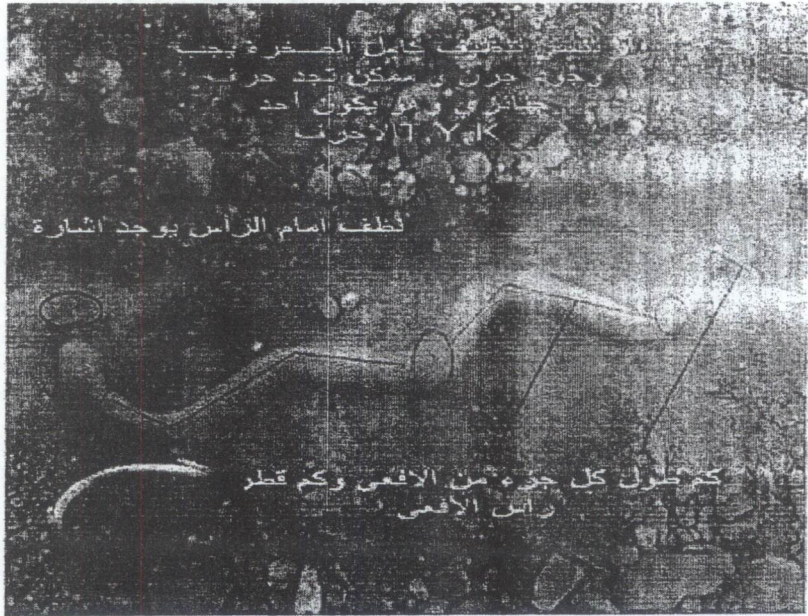 لا تنسى تنظيف كامل الصخرة يجب
وجود جرن و ممكن تجد حرف
أحد
الاحرف T.Y.K
نظف امام الرأس يوجد اشارة
كم طول كل جزء من الافعى وكم قطر
راس الافعى